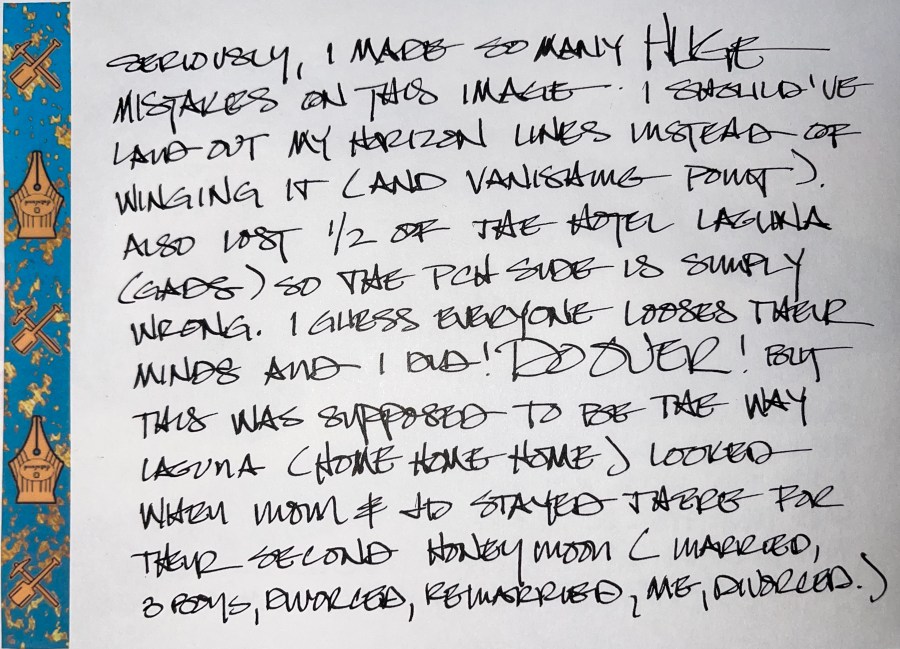 SERIOUSLY, I MADE SO MANY HUGE
MISTAKES ON THIS IMAGE.. I SHOULD'VE
LAID OUT MY HORIZON LINES INSTEAD OF
WINGING IT (AND VANISHING POINT).
ALSO LOST 1/2 OF THE HOTEL LAGUNA
(GADS) SO THE PCH SIDE IS SIMPLY
WRONG. I GUESS EVERYONE LOOSES THEIR
MINDS AND I DID! DO OVER! BUT
THIS WAS SUPPOSED TO BE THE WAY
LAGUNA (HOME HOME HOME) LOOKED
WHEN MOM & JD STAYED THERE FOR
THEIR SECOND HONEYMOON (MARRIED,
3 BOYS, DIVORCED, REMARRIED, ME, DIVORCED.)